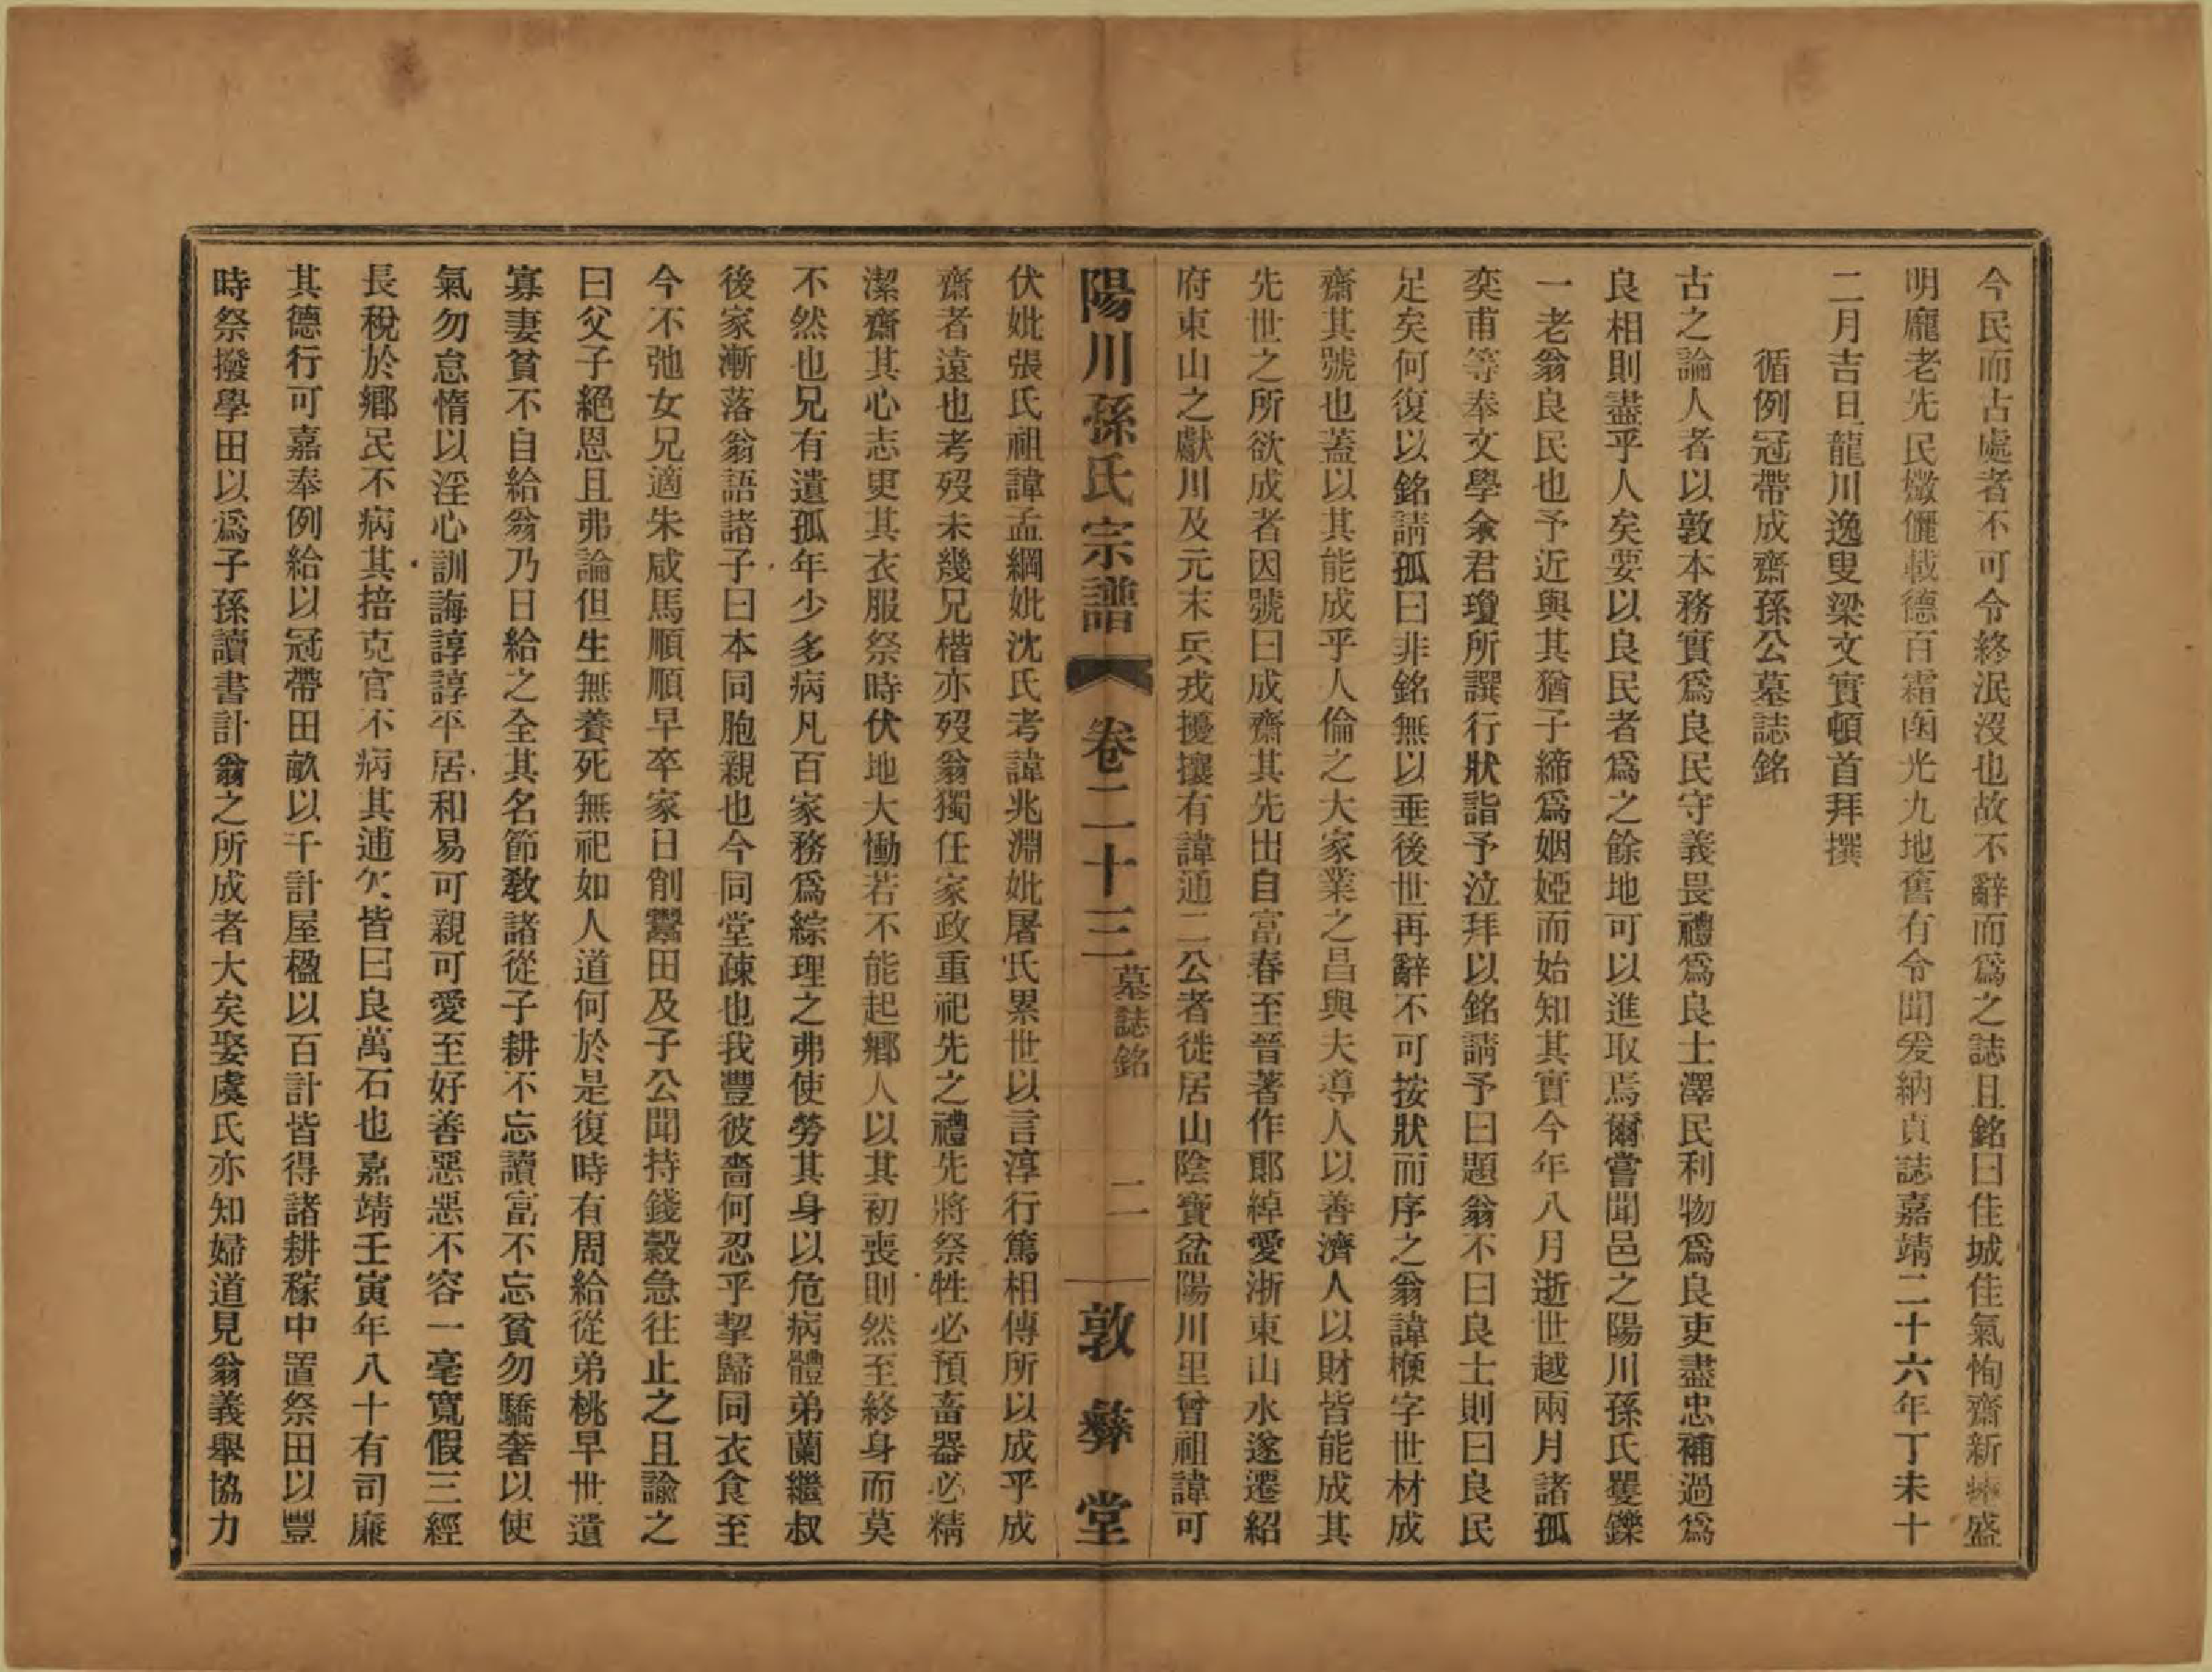 今民而古處者不可令終泯沒也故不辭而爲之誌且銘曰佳城佳氣恂齋新 盛
明龐老先民 儷載德百霜函光九地舊有令聞爰納貞誌嘉靖二十六年丁未十
二月吉旦龍川逸叟梁文實頓首拜撰
循例冠帶成齋孫公墓誌銘
古之論人者以敦本務實爲良民守義畏禮爲良士澤民利物爲良吏盡忠補過爲
良相則盡乎人矣要以良民者爲之餘地可以進取焉爾嘗聞邑之陽川孫氏矍鑠
一老翁良民也予近與其猶子締爲姻婭而始知其實今年八月逝世越兩月諸孤
奕甫等奉文學余君瓊所譔行狀詣予泣拜以銘請予曰題翁不曰良士則曰良民
足矣何復以銘請孤曰非銘無以垂後世再辭不可按狀而序之翁諱楩字世材成
齋其號也蓋以其能成乎人倫之大家業之昌與夫導人以善濟人以財皆能成其
先世之所欲成者因號曰成齋其先出自富春至晉著作郞綽愛浙東山水遂遷紹
府東山之獻川及元末兵戎擾攘有諱通二公者徙居山陰賽盆陽川里曾祖諱可
陽川孫氏宗譜 卷二十三 墓誌銘 二 敦彝堂
伏妣張氏祖諱孟綱妣沈氏考諱兆淵妣屠氏累世以言淳行篤相傳所以成乎成
齋者遠也考歿未幾兄楷亦歿翁獨任家政重祀先之禮先將祭牲必預畜器必精
潔齋其心志更其衣服祭時伏地大慟若不能起鄕人以其初喪則然至終身而莫
不然也兄有遺孤年少多病凡百家務爲綜理之弗使勞其身以危病體弟蘭繼叔
後家漸落翁語諸子曰本同胞親也今同堂疎也我豐彼嗇何忍乎挈歸同衣食至
今不弛女兄適朱咸馬順順早卒家日削鬻田及子公聞持錢穀急往止之且諭之
曰父子絕恩且弗論但生無養死無祀如人道何於是復時有周給從弟桃早世遺
寡妻貧不自給翁乃日給之全其名節敎諸從子耕不忘讀富不忘貧勿驕奢以使
氣勿怠惰以淫心訓誨諄諄平居和易可親可愛至好善惡惡不容一毫寬假三經
長稅於鄕民不病其掊克官不病其逋欠皆曰良萬石也嘉靖壬寅年八十有司廉
其德行可嘉奉例給以冠帶田畝以千計屋楹以百計皆得諸耕稼中置祭田以豐
時祭撥學田以爲子孫讀書計翁之所成者大矣娶虞氏亦知婦道見翁義舉協力